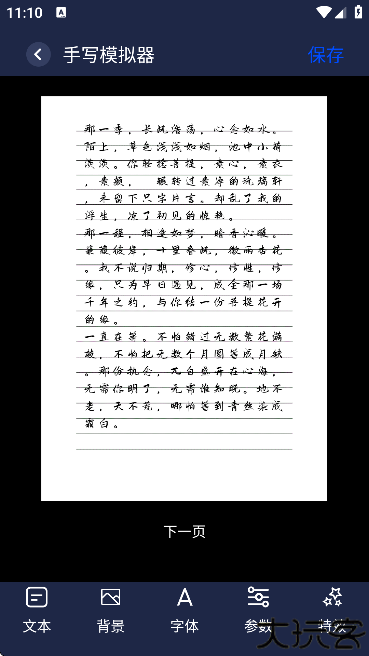 11:10
手写模拟器
保存
那一季，长风浩荡，心念如水。
陌上，草色浅浅如烟，池中小荷
淡淡。你轻捻菩提，素心，素衣
，素颜，
辗转过素净的流满轩
，未留下只字片言。却乱了我的
浮生，凉了初见的惊艳。
那一程，相逢如梦，暗香沁暖。
，十里春风，微雨杏花
。我不说归期，修心，修性，修
缘，只为早日遇见，成全那一场
千年之约，与你结一份菩提花开
的缘。
一直在等。不怕错过无数繁花满
枝，不怕把无数个月圆等成月缺
。那份执念，兀自盛开在心海，
无需你明了，无需谁知晓。地不
老，天不荒，哪怕等到青丝染成
霜白。
下一页
文本
背景
字体
参数
特效
大玩客